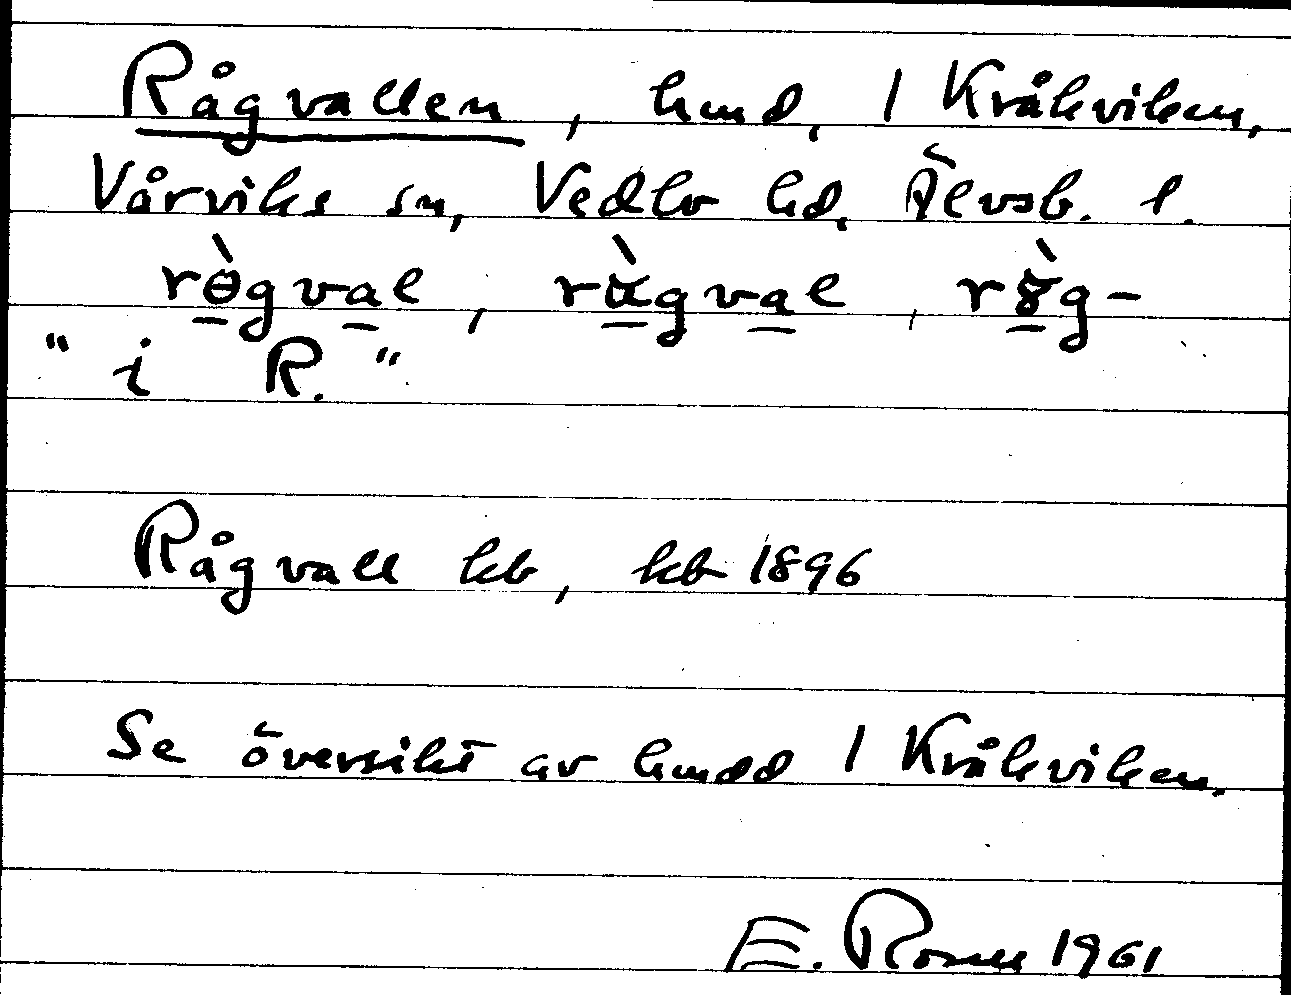 Rågvallen, hmd. 1 Kråkviken,
Vårviks sn, Vedbo hd, Älvsb. l.
rògval, ràgval, ròg-
"i R."
Rågvall kb, kb 1896
Se översikt av hmdd 1 Kråkviken.
E. Rosell 1961